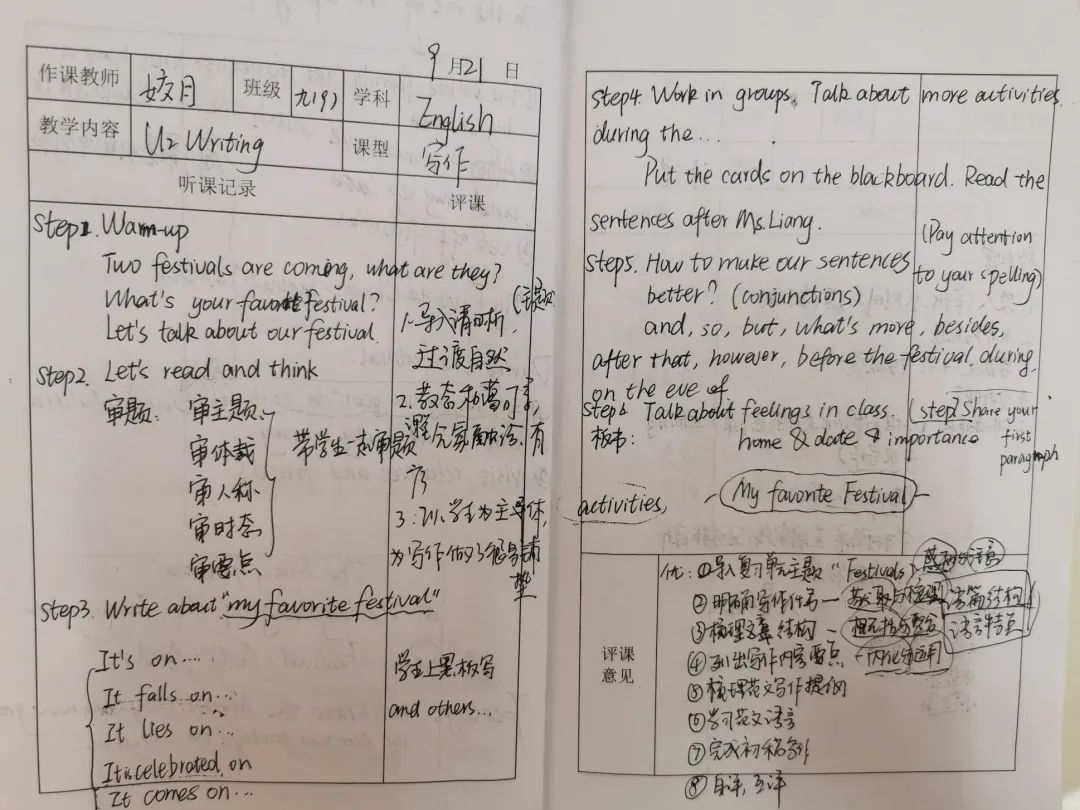 9月21日
作课教师 姣月 班级 九(9) 学科 English
教学内容 U2 Writing 课型 写作
听课记录 评课
Step1. Warm-up
Two festivals are coming, what are they?
What's your favorite festival?
Let's talk about our festival.
(主题)
1.导入清晰,
过渡自然
Step2. Let's read and think
审题: 审主题
审体裁
审人称
审时态
审要点
带学生一起审题
2.教态和蔼可亲,
有
序
3.以学生为主体,
为写作做了很多铺
垫
Step3. Write about "my favorite festival"
It's on...
It falls on...
It lies on...
It is celebrated on
It comes on...
学生上黑板写
and others...
Step4. Work in groups. Talk about more activities
during the...
Put the cards on the blackboard. Read the
sentences after Ms. Liang.
(Pay attention
to your spelling)
Step5. How to make our sentences
better? (conjunctions)
and, so, but, what's more, besides,
after that, however, before the festival, during,
on the eve of
Step6 Talk about feelings in class.
Step7 Share your
first
paragraph
板书: home & date & importance
activities, — My favorite Festival —
评课
意见
优: ①导入复习单元主题 "Festivals"
②明确写作任务
③梳理文章结构
④列出写作内容要点
⑤梳理范文写作提纲
⑥学习范文语言
⑦完成初稿写作
⑧自评,互评
语篇结构
语言特点
内化与运用